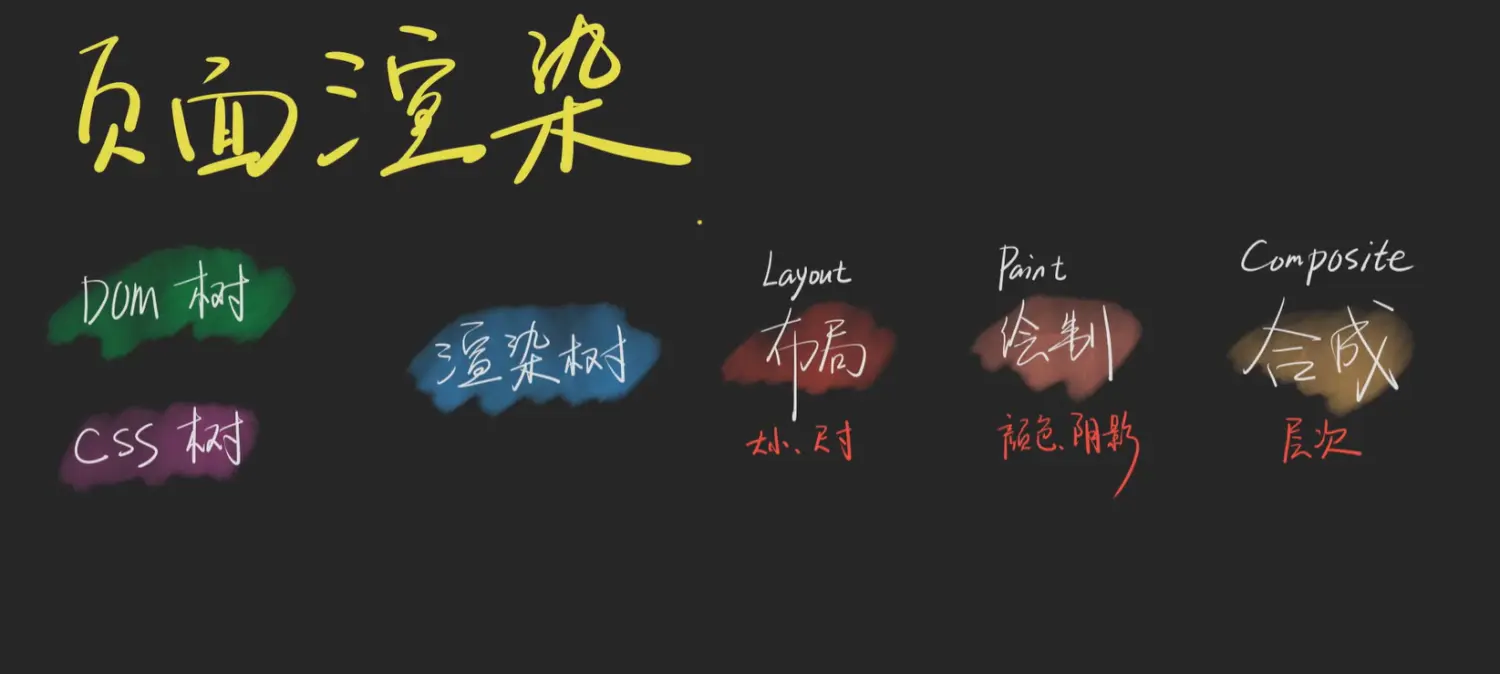 页面渲染
DOM 树
CSS 树
渲染树
Layout
布局
大小、尺寸
Paint
绘制
颜色、阴影
Composite
合成
层次